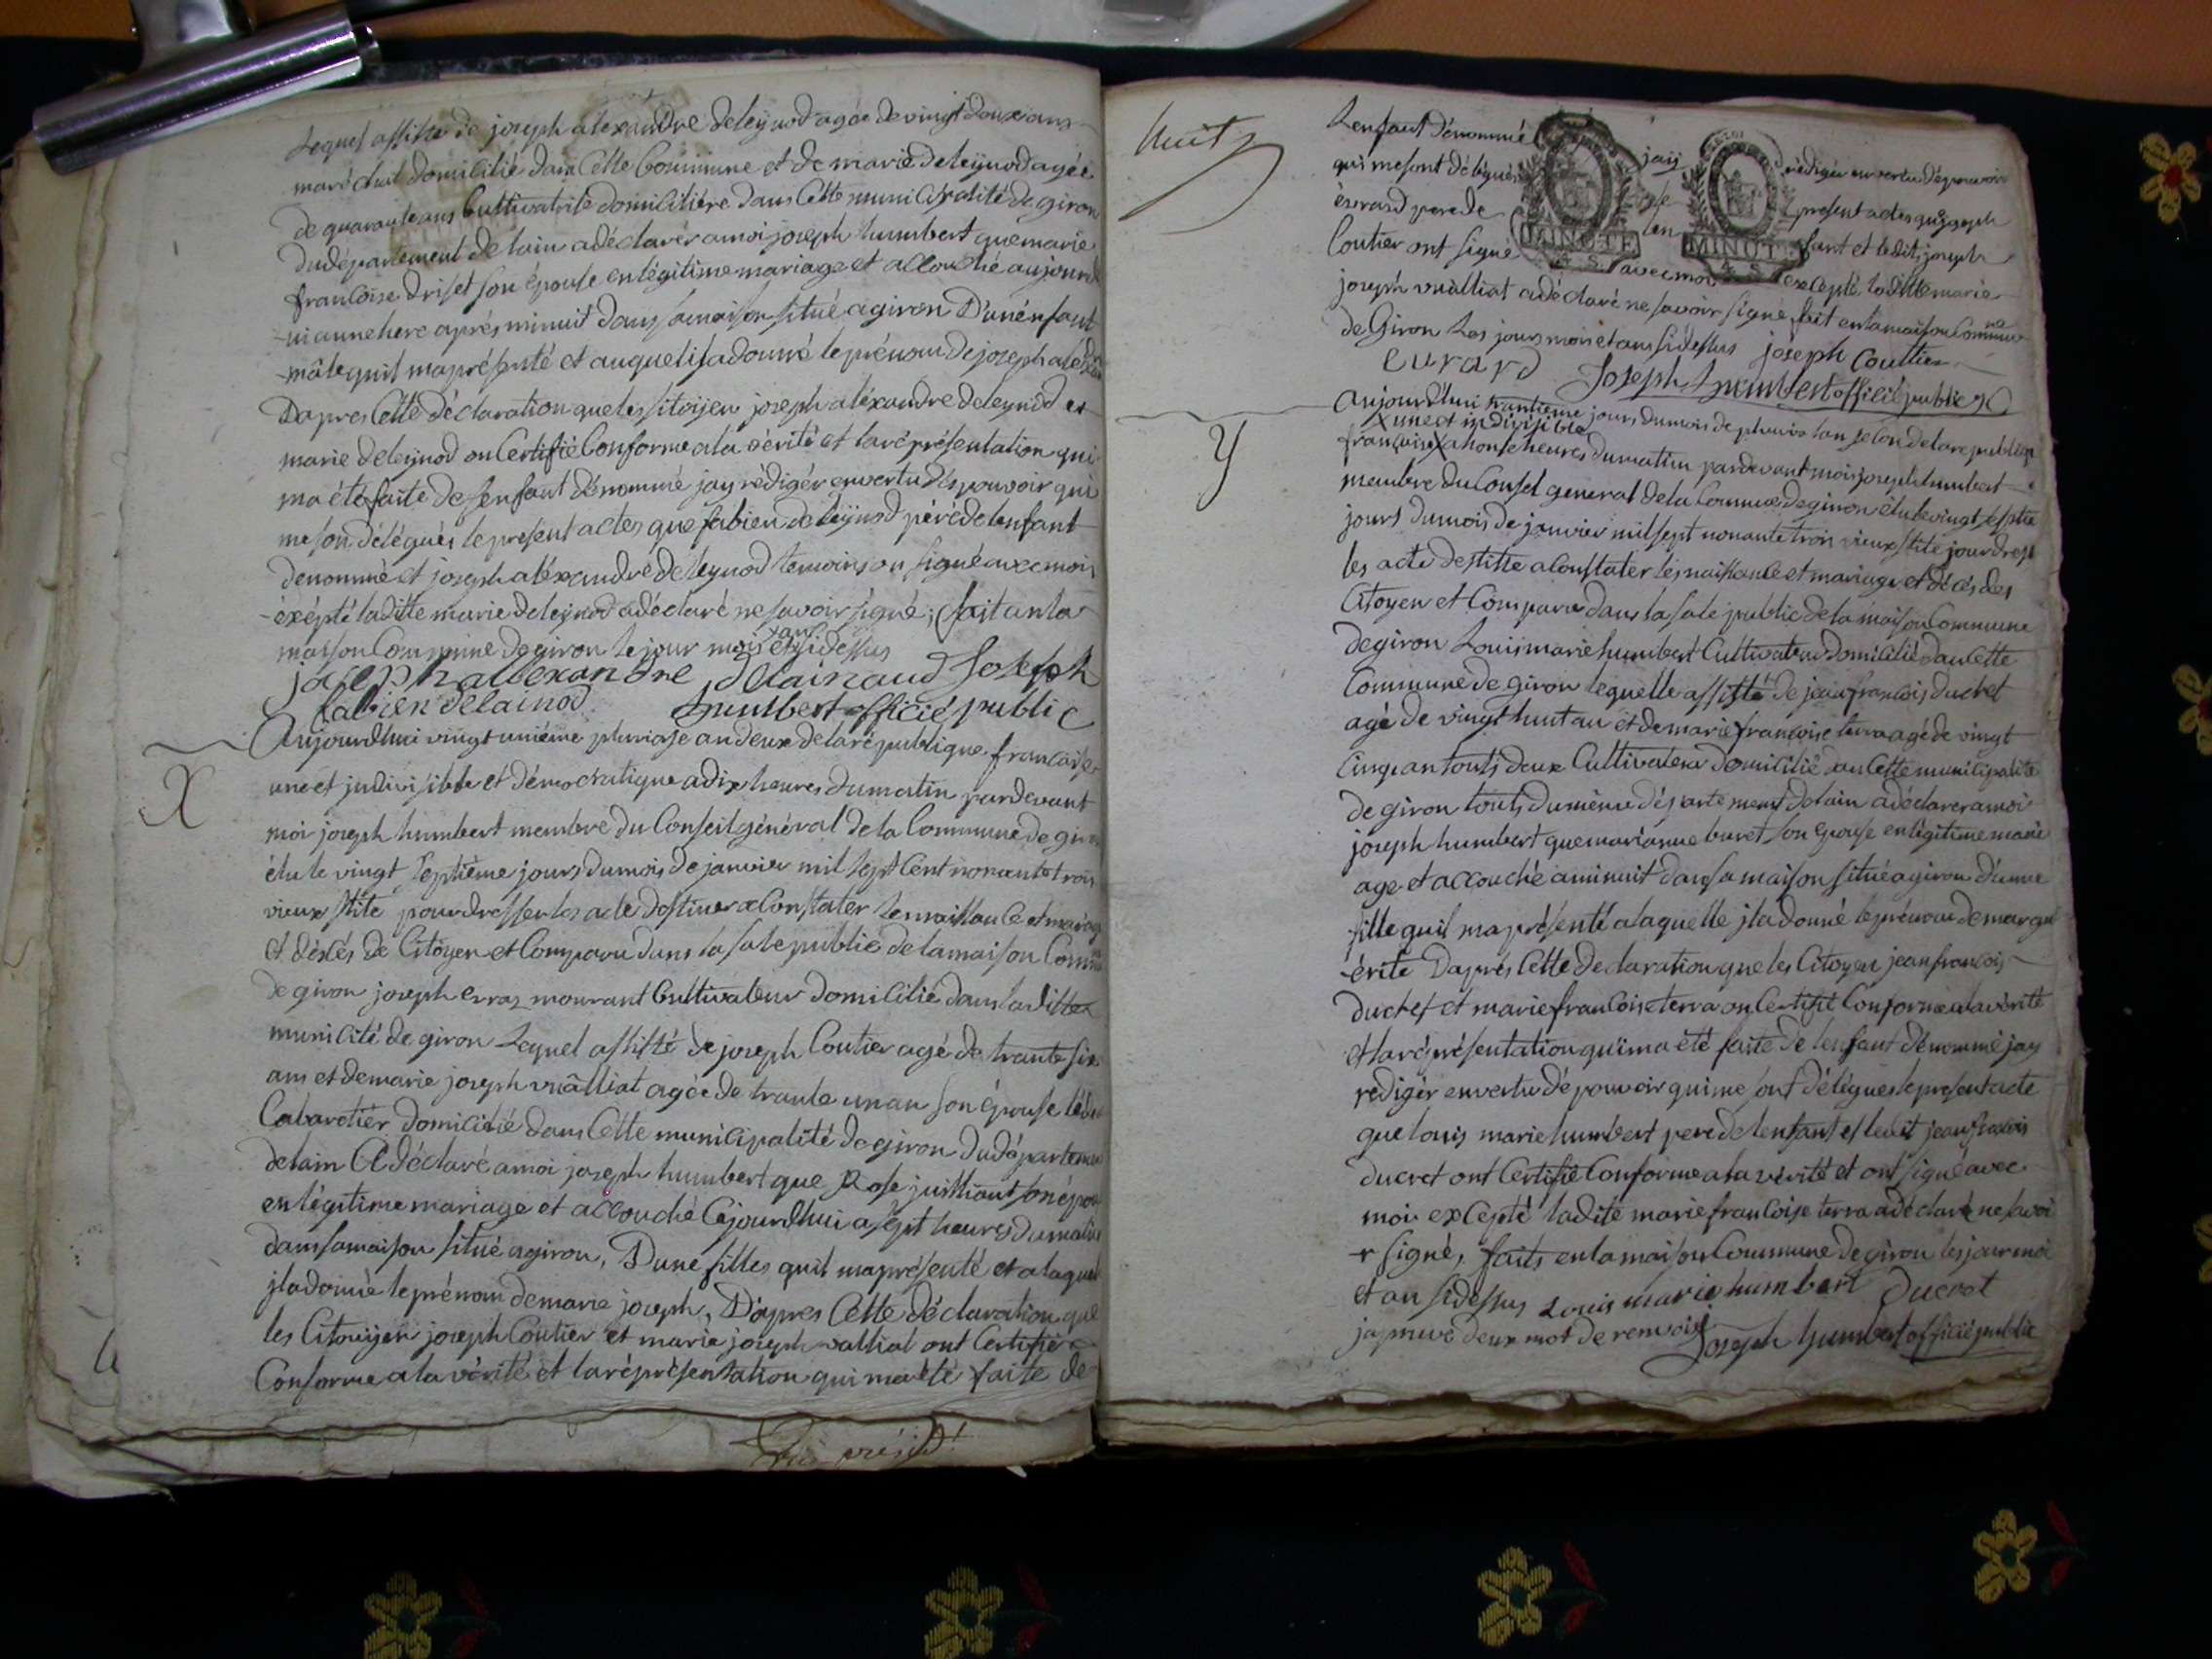 Lequel assisté de joseph alexandre deleynod agée de vingt douxe ans
maréchal domicilié dans Cette Commune et de marie deleynod agée
de quarante ans Cultivatrite domicilière dans Cette municipalité de giron
du département de lain a déclarér a moi joseph humbert que marie
francoise driset son épouse en légitime mariage et accouché aujourd
-ui a une here après minuit dans sa maison situé a giron D'un énfant
-mâle quil ma présenté et auquel il a donné le prénom de joseph
Dapres Cette déclaration que les sitoijen joseph aléxandre deleynod et
marie deleynod on Certifié Conforme a la vérité et la réprésentation qui
ma été faite de lenfant dénommé jay rédigér en vertu dés pouvoir qui
me son délégués le present actes que fabien deleynod péré de lenfant
denommé et joseph aléxandre deleynod temoins on signé avec moi
-éxépté laditte marie deleynod a déclaré ne savoir signé; fait an la
maison Commune de giron le jour mois et an sidessus
joseph allexandre delainaud Joseph
fabien delainod humbert officié public
X Aujourdhui vingt uniéme pluviose an deux de la république francaise
une et jndivisible et démocratique a dix heures du matin pardevant
moi joseph humbert membre du Conseil général de la Commune de giron
élu le vingt septième jours du mois de janvier mil sept Cent nonante trois
vieux stile pour dresser les acte destiner a Constater les naissance et mariag
et déxés de Citoyen et Comparu dans la sale public de la maison Comm
de giron joseph evraz mourant Cultivateur domicilié dans laditte
municité de giron Lequel assisté de joseph Coutier agé de trante six
ans et de marie joseph vuâlliat agée de trante un an son épouse
Cabarétier domicilié dans Cette municipalité de giron du départemen
de lain A déclaré a moi joseph humbert que Rose son épou
en légitime mariage et accouché Cejourdhui a sept heures du matin
dans sa maison situé a giron, D'une filles quil ma présenté et a laquel
jl a donné le prénom de marie joseph, D'apres Cette déclaration que
les Citoijen joseph Coutier et marie joseph valliat ont Certifié
Conforme a la vérité et la réprésentation qui ma été faite de
huit
Lenfant dénommé jaij rédigér en vertu dé pouvoir
qui me sont délégués le present actes que joseph
évrard pere de len fant et ledit joseph
Coutier ont signé avec moi excépté laditte marie
joseph vuâlliat a déclaré ne savoir signé fait en la maison Commune
de Giron Les jours mois et ans sidessus joseph Couttier
Evrard Joseph humbert officié public
Y Aujourdhui trantieme jours du mois de pluviose lan selon de la republiqu
X une et indivisible
francaise X a honse heures du matin pardevant moi joseph humbert
membre du Consel general de la Commune de giron élu le vingt septie
jours du mois de janvier mil sept nonante trois vieux stile
les acte destitte a Constater les naissance et mariage et décés des
Citoyen et Comparu dans la sale public de la maison Commune
de giron Louis marie humbert Cultivateur domicilié dans Cette
Commune de giron lequelle assisté de jean francois ducret
agé de vingt huit an et de marie francoise terra agé de vingt
Cinq an touts deux Cultivateur domicilié dans Cette municipalité
de giron touts du même département de lain a déclarer a moi
joseph humbert que marianne buret son épouse en légitime mari
age et accouché a minuit dans sa maison situé a giron d'une
fille quil ma présenté a laquelle jl a donné le prénom de margu
-érite Daprès Cette declaration que les Citoyen jean francois
ducret et marie francoise terra on Certifié Conforme a la vérité
et la réprésentation qui ma été faite de lenfant dénommé jay
redigér en vertu dé pouvoir qui me sont délégues le present acte
que louis marie humbert pere de lenfant et ledit jean francois
ducret ont Certifié Conforme a la vérité et ont signé avec
moi excépté ladite marie francoise terra a déclaré ne savoi
-r signé, faits en la maison Commune de giron les jour moi
et an sidessus Louis marie humbert Ducret
japruve deux mot de renvois Joseph humbert officié public
MINUTE
4 S.
MINUT
4 S